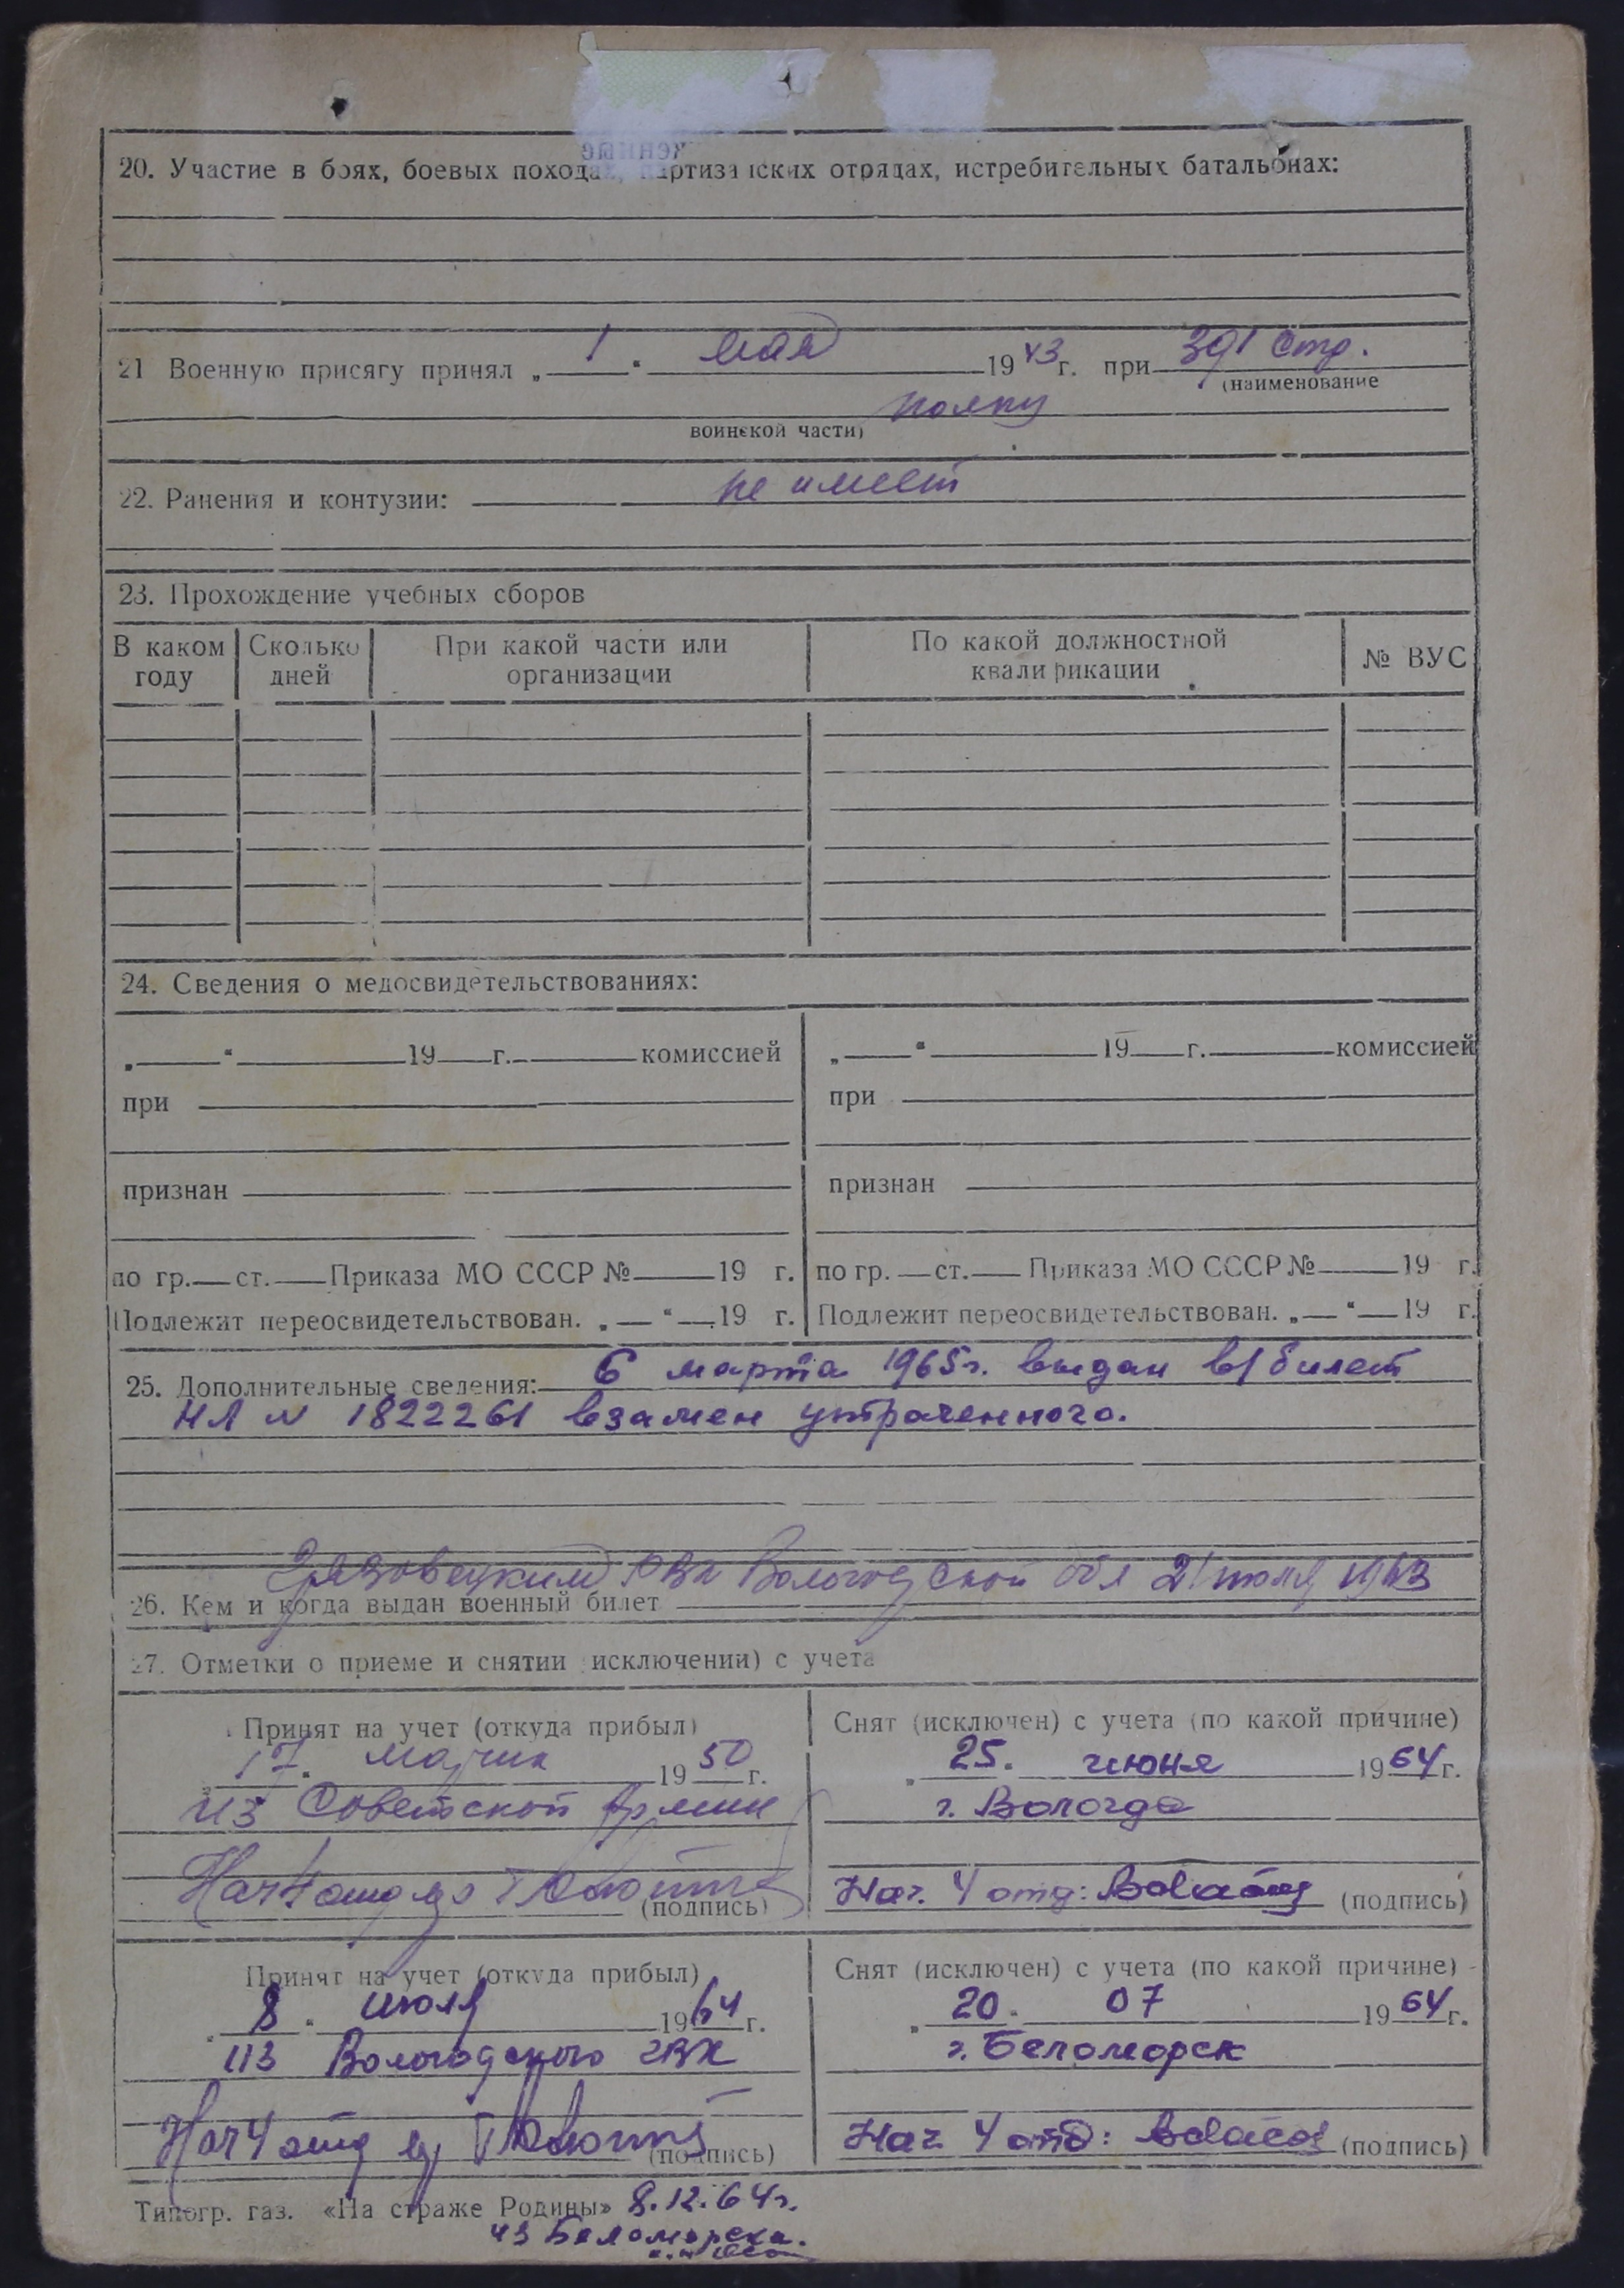 20. Участие в боях, боевых походах, партизанских отрядах, истребительных батальонах:
21 Военную присягу принял „ 1 “ мая 1943 г. при 391 стр.
(наименование
полку
воинской части)
22. Ранения и контузии: не имеет
23. Прохождение учебных сборов
В каком году Сколько дней При какой части или организации По какой должностной квалификации № ВУС
24. Сведения о медосвидетельствованиях:
„ “ 19 г. комиссией „ “ 19 г. комиссией
при при
признан признан
по гр. ст. Приказа МО СССР № 19 г. по гр. ст. Приказа МО СССР № 19 г.
Подлежит переосвидетельствован. „ “ 19 г. Подлежит переосвидетельствован. „ “ 19 г.
25. Дополнительные сведения: 6 марта 1965 г. выдан в/билет
НЛ N 1822261 взамен утраченного.
Грязовецким РВК Вологодской обл 21 июля 1943
26. Кем и когда выдан военный билет
27. Отметки о приеме и снятии (исключении) с учета
Принят на учет (откуда прибыл) Снят (исключен) с учета (по какой причине)
„ 17 “ 1950 г. „ 25 “ июня 1964 г.
из Советской Армии г. Вологда
Нач 4 отд Нач. 4 отд:
(подпись) (подпись)
Принят на учет (откуда прибыл) Снят (исключен) с учета (по какой причине)
„ 8 “ июля 1964 г. „ 20 “ 07 1964 г.
из Вологодского ГВК г. Беломорск
Нач 4 отд Нач 4 отд:
(подпись) (подпись)
Типогр. газ. «На страже Родины» 8.12.64 г.
из Беломорска.